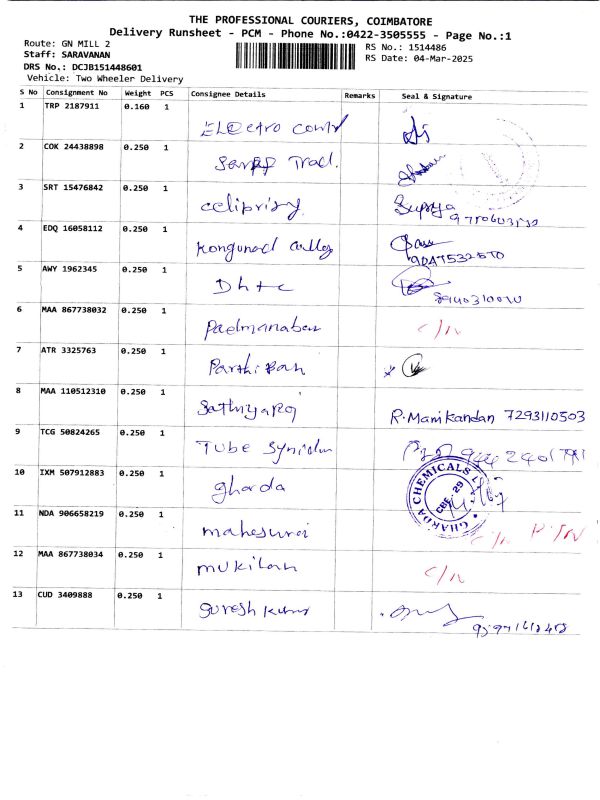 THE PROFESSIONAL COURIERS, COIMBATORE
Delivery Runsheet - PCM - Phone No.:0422-3505555 - Page No.:1
Route: GN MILL 2
RS No.: 1514486
Staff: SARAVANAN
RS Date: 04-Mar-2025
DRS No.: DCJB151448601
Vehicle: Two Wheeler Delivery
S No Consignment No Weight PCS Consignee Details Remarks Seal & Signature
1 TRP 2187911 0.160 1
2 COK 24438898 0.250 1
3 SRT 15476842 0.250 1 Supriya
4 EDQ 16058112 0.250 1
5 AWY 1962345 0.250 1 Dhtc
6 MAA 867738032 0.250 1 Padmanaban C/N
7 ATR 3325763 0.250 1 Parthiban
8 MAA 110512310 0.250 1 Sathiyaraj R.Manikandan 7293110503
9 TCG 50824265 0.250 1 Tube
10 IXM 507912883 0.250 1 gharda GHARDA CHEMICALS CBE-29
11 NDA 906658219 0.250 1 C/N
12 MAA 867738034 0.250 1 mukilan C/N
13 CUD 3409888 0.250 1 Suresh kumar